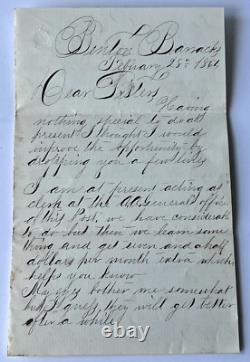 Benton Barracks
February 28th 1864
Dear Sisters,
Having
nothing special to do at
present I thought I would
improve the opportunity by
dropping you a few lines
I am at present acting as
clerk at the A.A. Generals office
of this Post, we have considerable
to do but then we learn some
thing and get seven and a half
dollars per month extra which
helps you know
My eyes bother me somewhat
but I guess they will get better
after a while